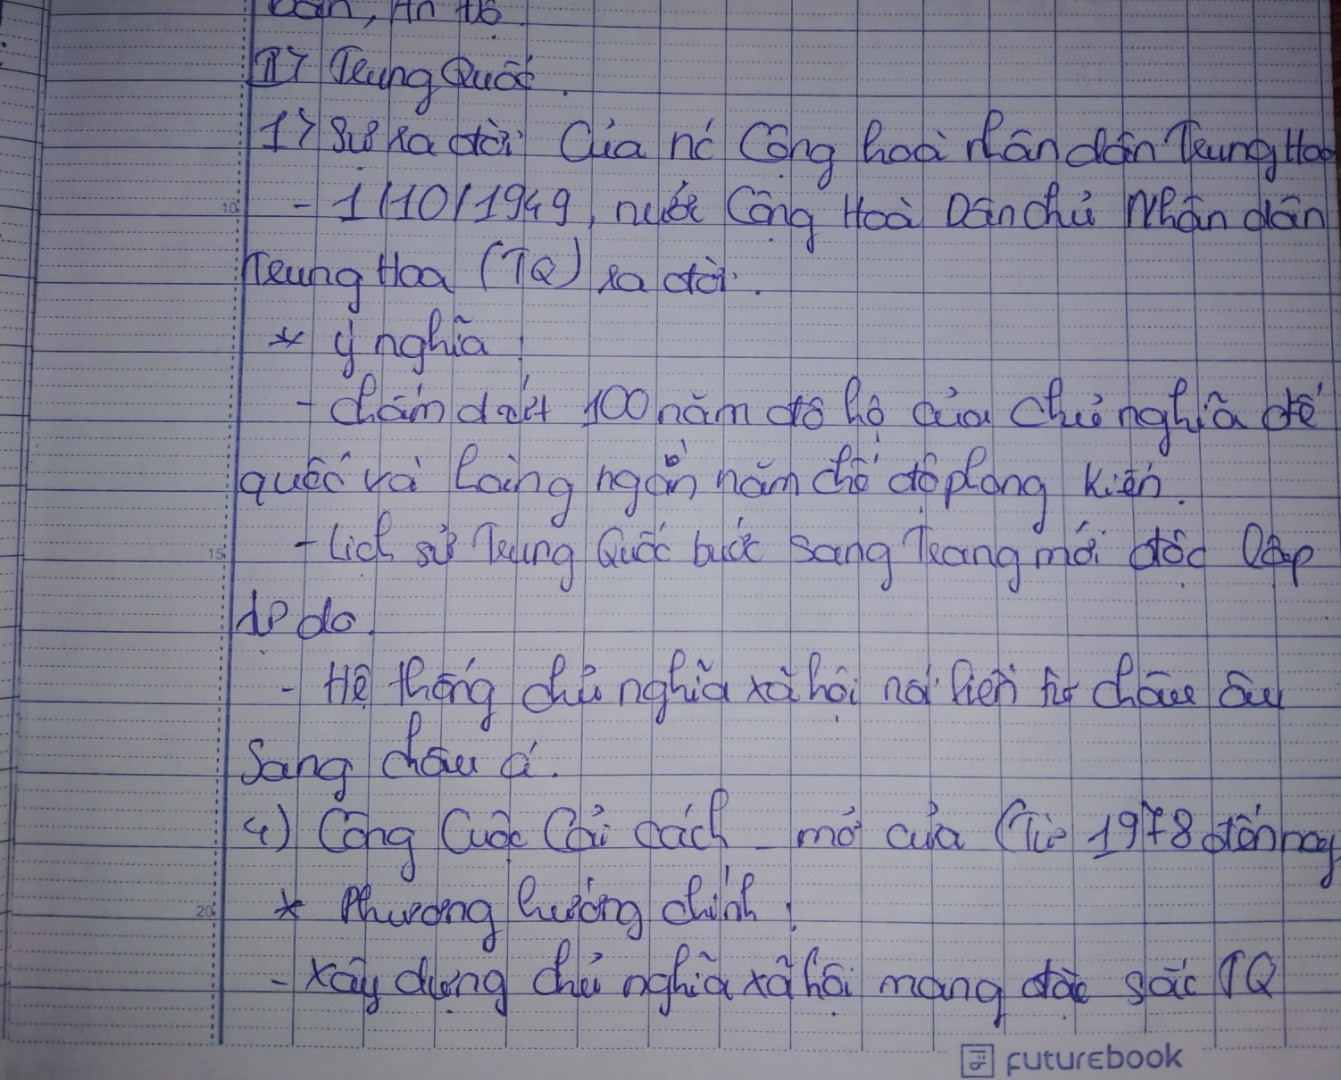 bản, Ấn Độ
II> Trung Quốc.
1> Sự ra đời của nc Cộng hoà nhân dân Trung Hoa
10
- 1/10/1949, nước Cộng Hoà Dân chủ Nhân dân
Trung Hoa (TQ) ra đời.
* ý nghĩa:
- chấm dứt 100 năm đô hộ của chủ nghĩa đế
quốc và hàng ngàn năm chế độ phong kiến.
15
- Lịch sử Trung Quốc bước sang Trang mới độc lập
tự do.
- Hệ thống chủ nghĩa xã hội nối liền từ châu âu
Sang châu á.
4) Công Cuộc Cải cách - mở cửa (Từ 1978 đến nay
20
* Phương hướng chính:
- Xây dựng chủ nghĩa xã hội mang đặc sắc TQ
FUTUREBOOK